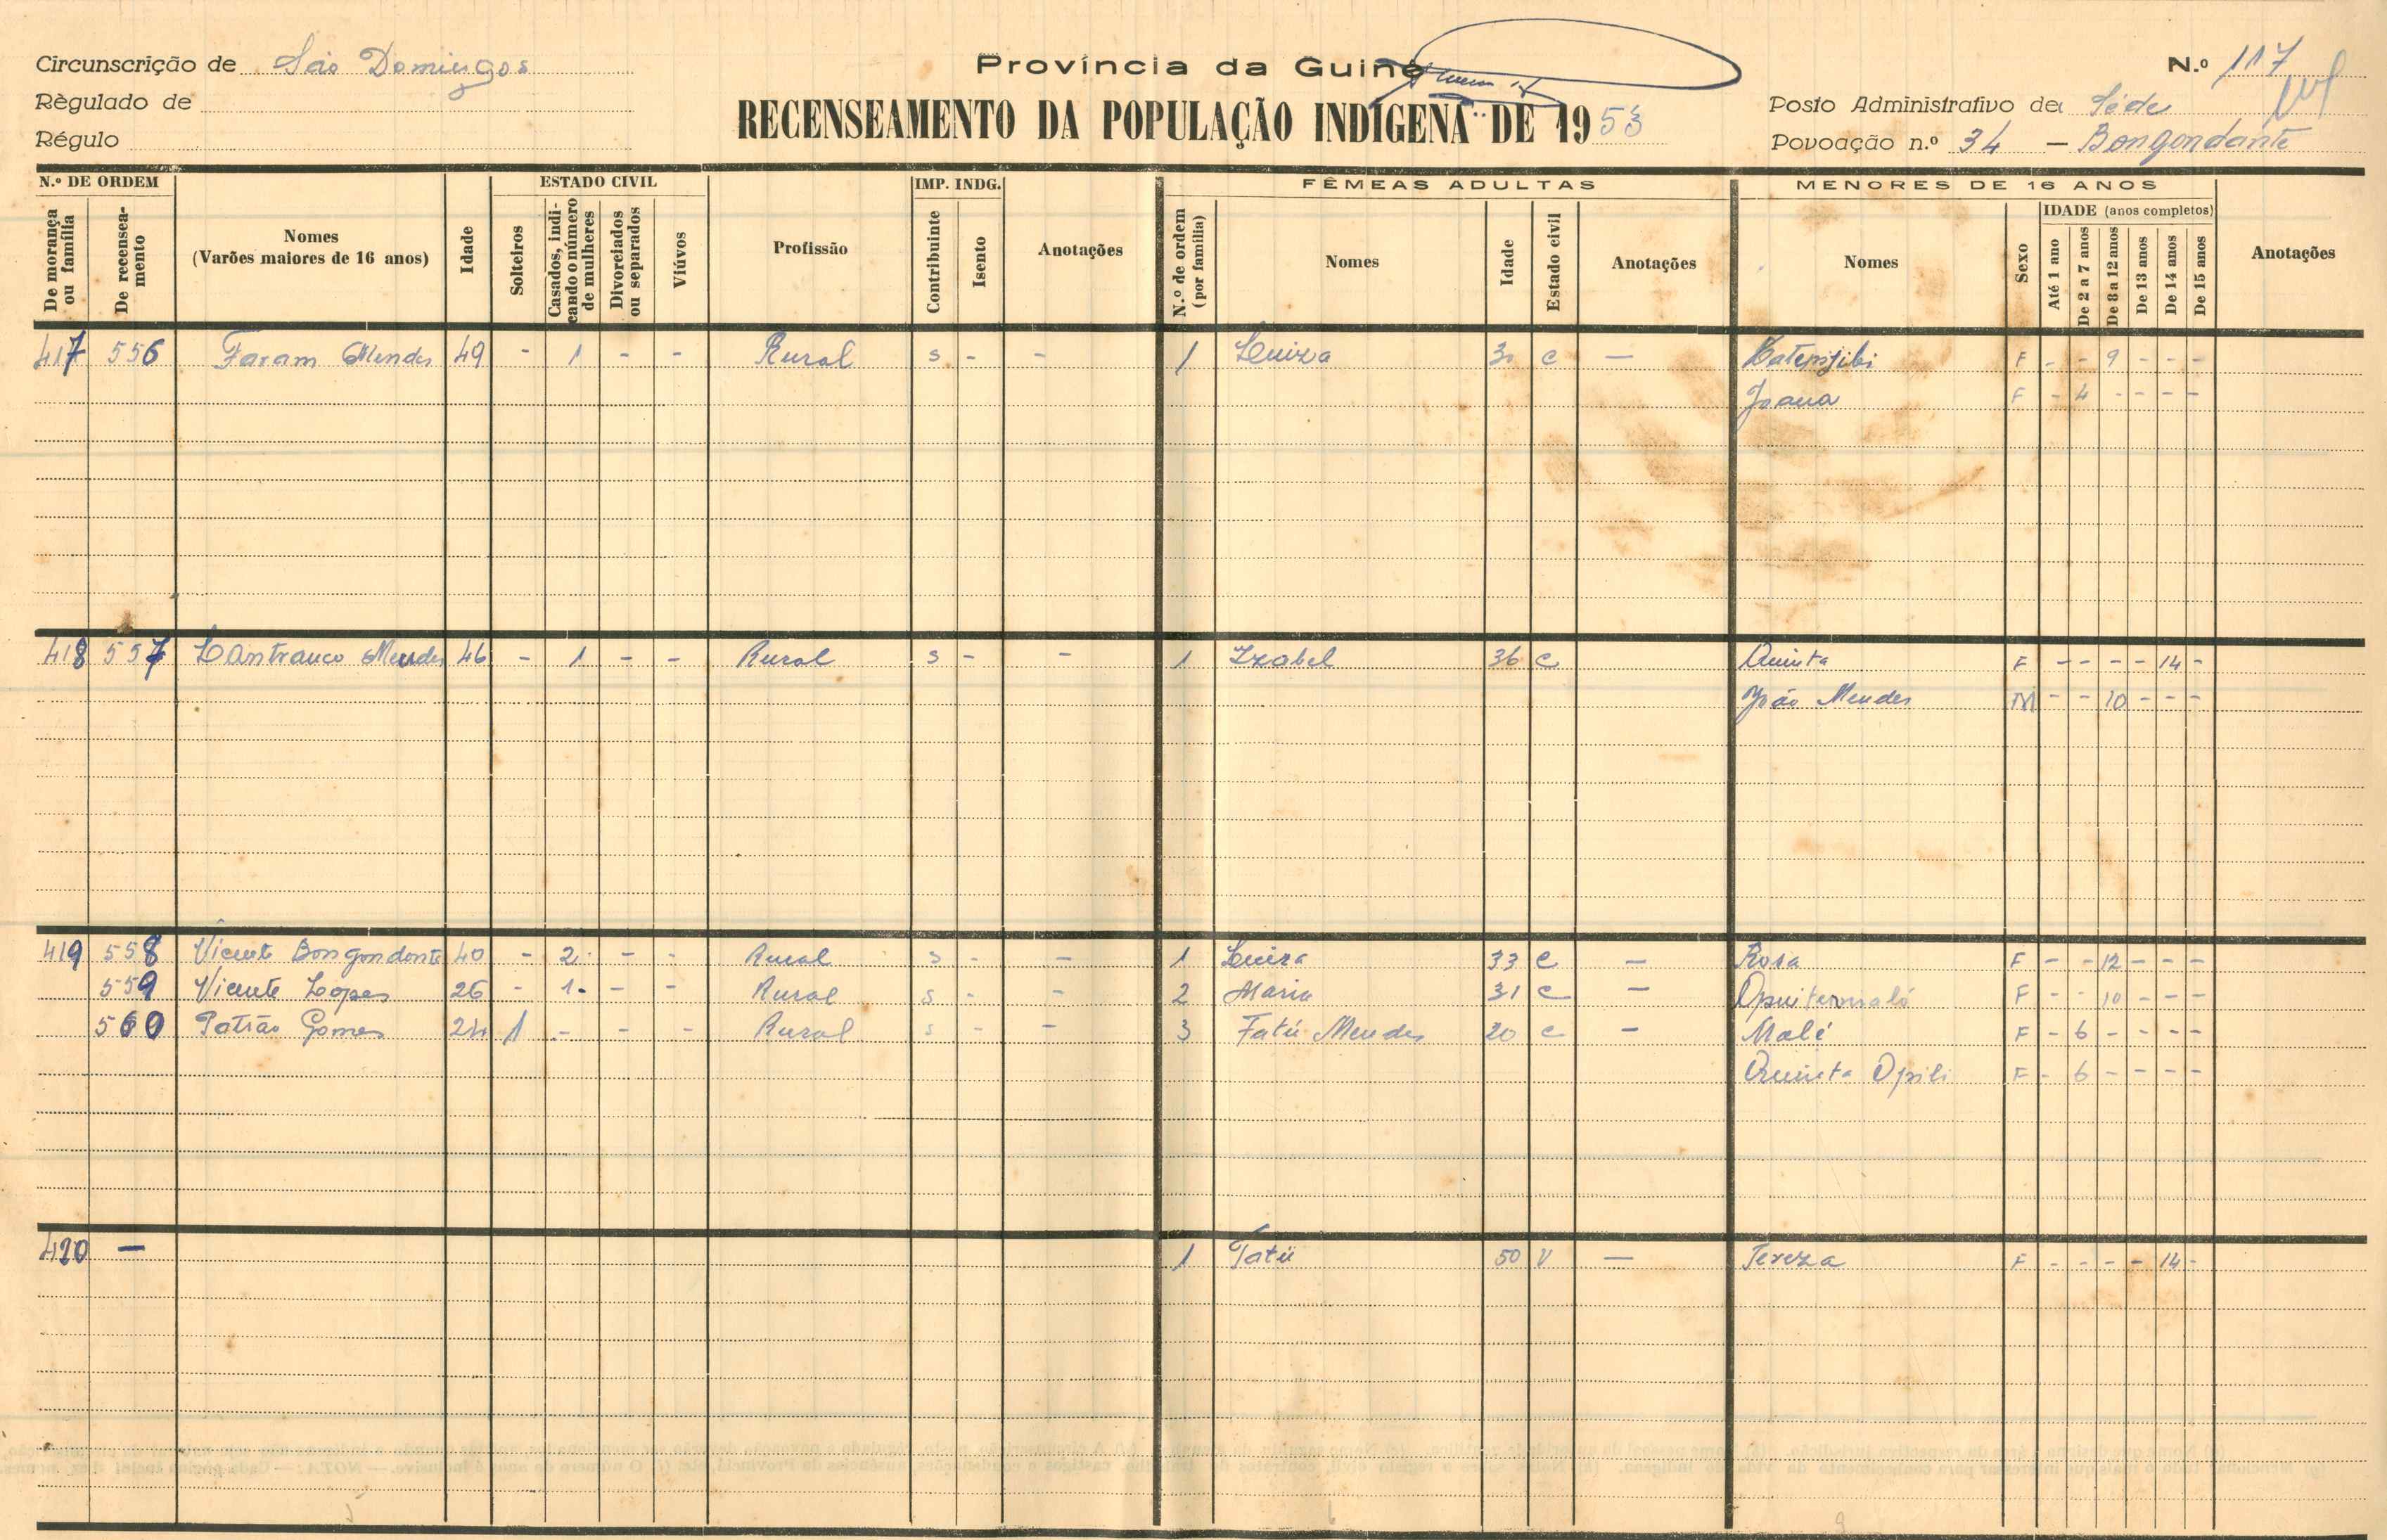 Circunscrição de São Domingos
Règulado de
Régulo
Província da Guiné
RECENSEAMENTO DA POPULAÇÃO INDÍGENA DE 1953
N.º 117
Posto Administrativo de Séde
Povoação n.º 34 — Bongondante
N.º DE ORDEM
De morança ou família
De recenseamento
Nomes
(Varões maiores de 16 anos)
Idade
ESTADO CIVIL
Solteiros
Casados, indicando o número de mulheres
Divorciados ou separados
Viúvos
Profissão
IMP. INDG.
Contribuinte
Isento
Anotações
FÊMEAS ADULTAS
N.º de ordem (por família)
Nomes
Idade
Estado civil
Anotações
MENORES DE 16 ANOS
Nomes
Sexo
IDADE (anos completos)
Até 1 ano
De 2 a 7 anos
De 8 a 12 anos
De 13 anos
De 14 anos
De 15 anos
Anotações
417 556 Faram Mendes 49 - 1 - - Rural s - - 1 Luiza 30 c — F - - 9 - - -
Joana F - 4 - - - -
418 557 Lantranco Mendes 46 - 1 - - Rural s - - 1 Izabel 36 c Quinta F - - - - 14 -
João Mendes M - - 10 - - -
419 558 Vicente Bongondante 40 - 2 - - Rural s - - 1 Luiza 33 c — Rosa F - - 12 - - -
559 Vicente Lopes 26 - 1 - - Rural s - - 2 Maria 31 c — F - - 10 - - -
560 Patrão Gomes 24 1 - - - Rural s - - 3 Fatú Mendes 20 c — Malé F - 6 - - - -
Quinta Opili F - 6 - - - -
420 — 1 Tatú 50 V — Tereza F - - - - 14 -